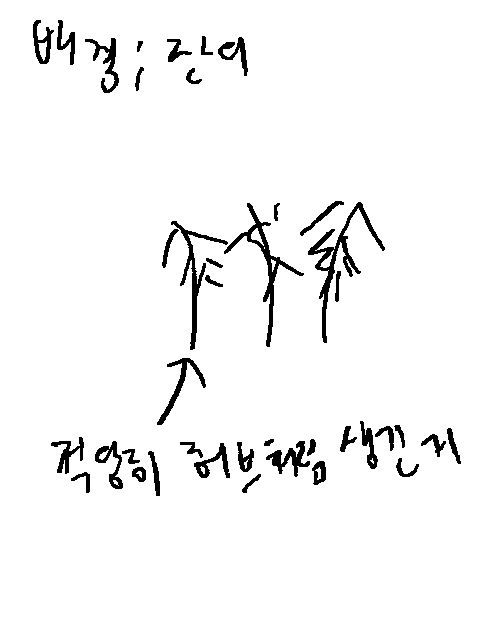 배경; 잔디
적당히 허브처럼 생긴거